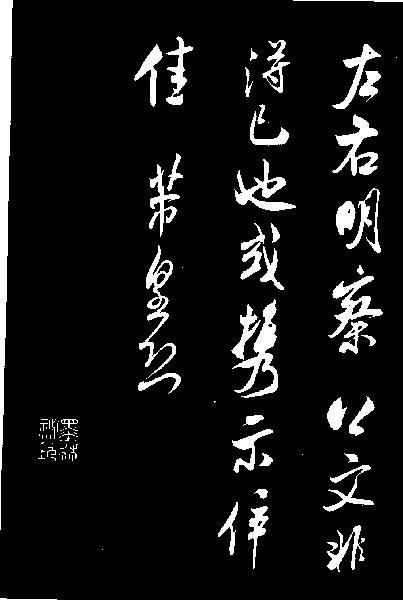 左右明察公文非
得已也或攜示倅
佳 芾皇恐
墨林
祕玩